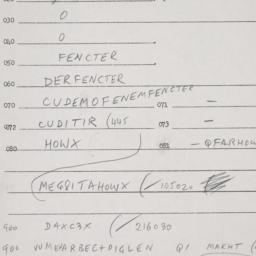 030 0
040 0
050 FENCTER
060 DERFENCTER
070 CUDEMOFENEMFENCTER 071 -
072 CUDITIR (445 073 -
080 HOWX 081 - QFARHOW
MEG8ITAHOWX (/105020
900 D4XC3X (/216030
900 QI MAKHT